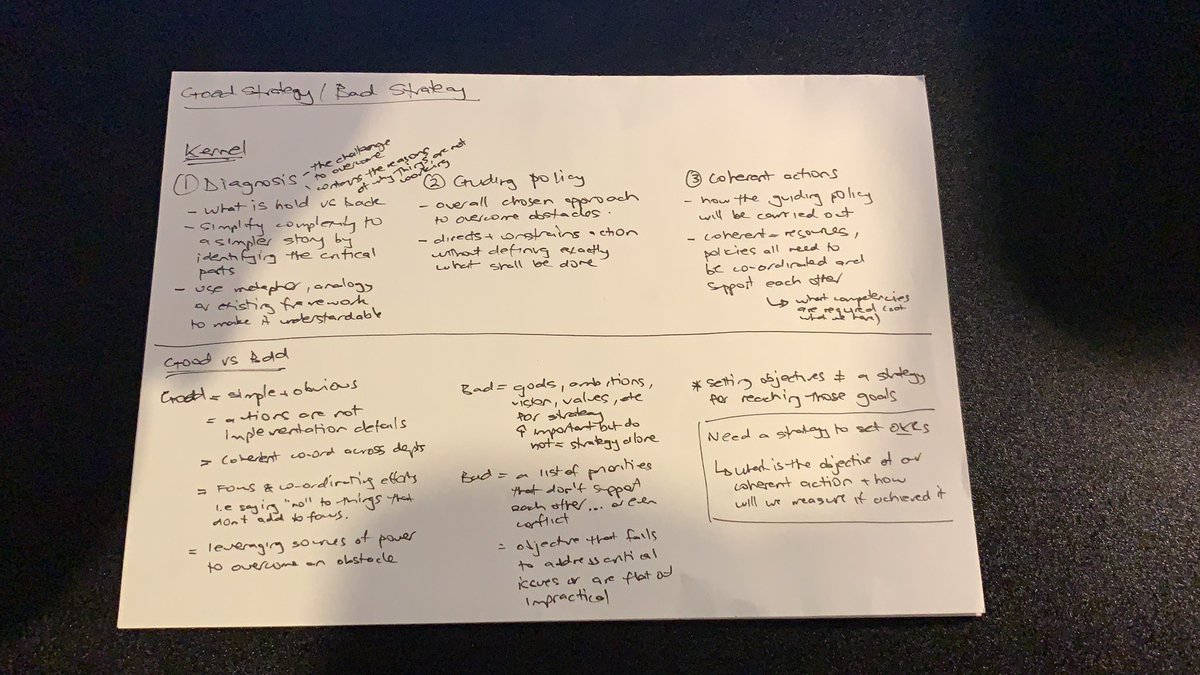 Good Strategy / Bad Strategy
Kernel
① Diagnosis
- the challenge
to overcome
- contains the reasons
of why things are not
working
- what is hold us back
- simplify complexity to
a simpler story by
identifying the critical
parts
- use metaphor, analogy
or existing framework
to make it understandable
② Guiding policy
- overall chosen approach
to overcome obstacles.
- directs + constrains action
without defining exactly
what shall be done
③ Coherent actions
- how the guiding policy
will be carried out
- coherent = resources,
policies all need to
be co-ordinated and
support each other
↳ what competencies
are required (not
what we have)
Good vs Bad
Good = simple + obvious
= actions are not
implementation details
= coherent co-ord across depts
= Focus & co-ordinating efforts
i.e saying "no" to things that
don't add to focus.
= leveraging sources of power
to overcome an obstacle
Bad = goals, ambitions,
vision, values, etc
for strategy
↑ important but do
not = strategy alone
Bad = a list of priorities
that don't support
each other... or even
conflict
= objective that fails
to address critical
issues or are flat out
impractical
* setting objectives ≠ a strategy
for reaching those goals
Need a strategy to set OKRs
↳ what is the objective of our
coherent action + how
will we measure if achieved it